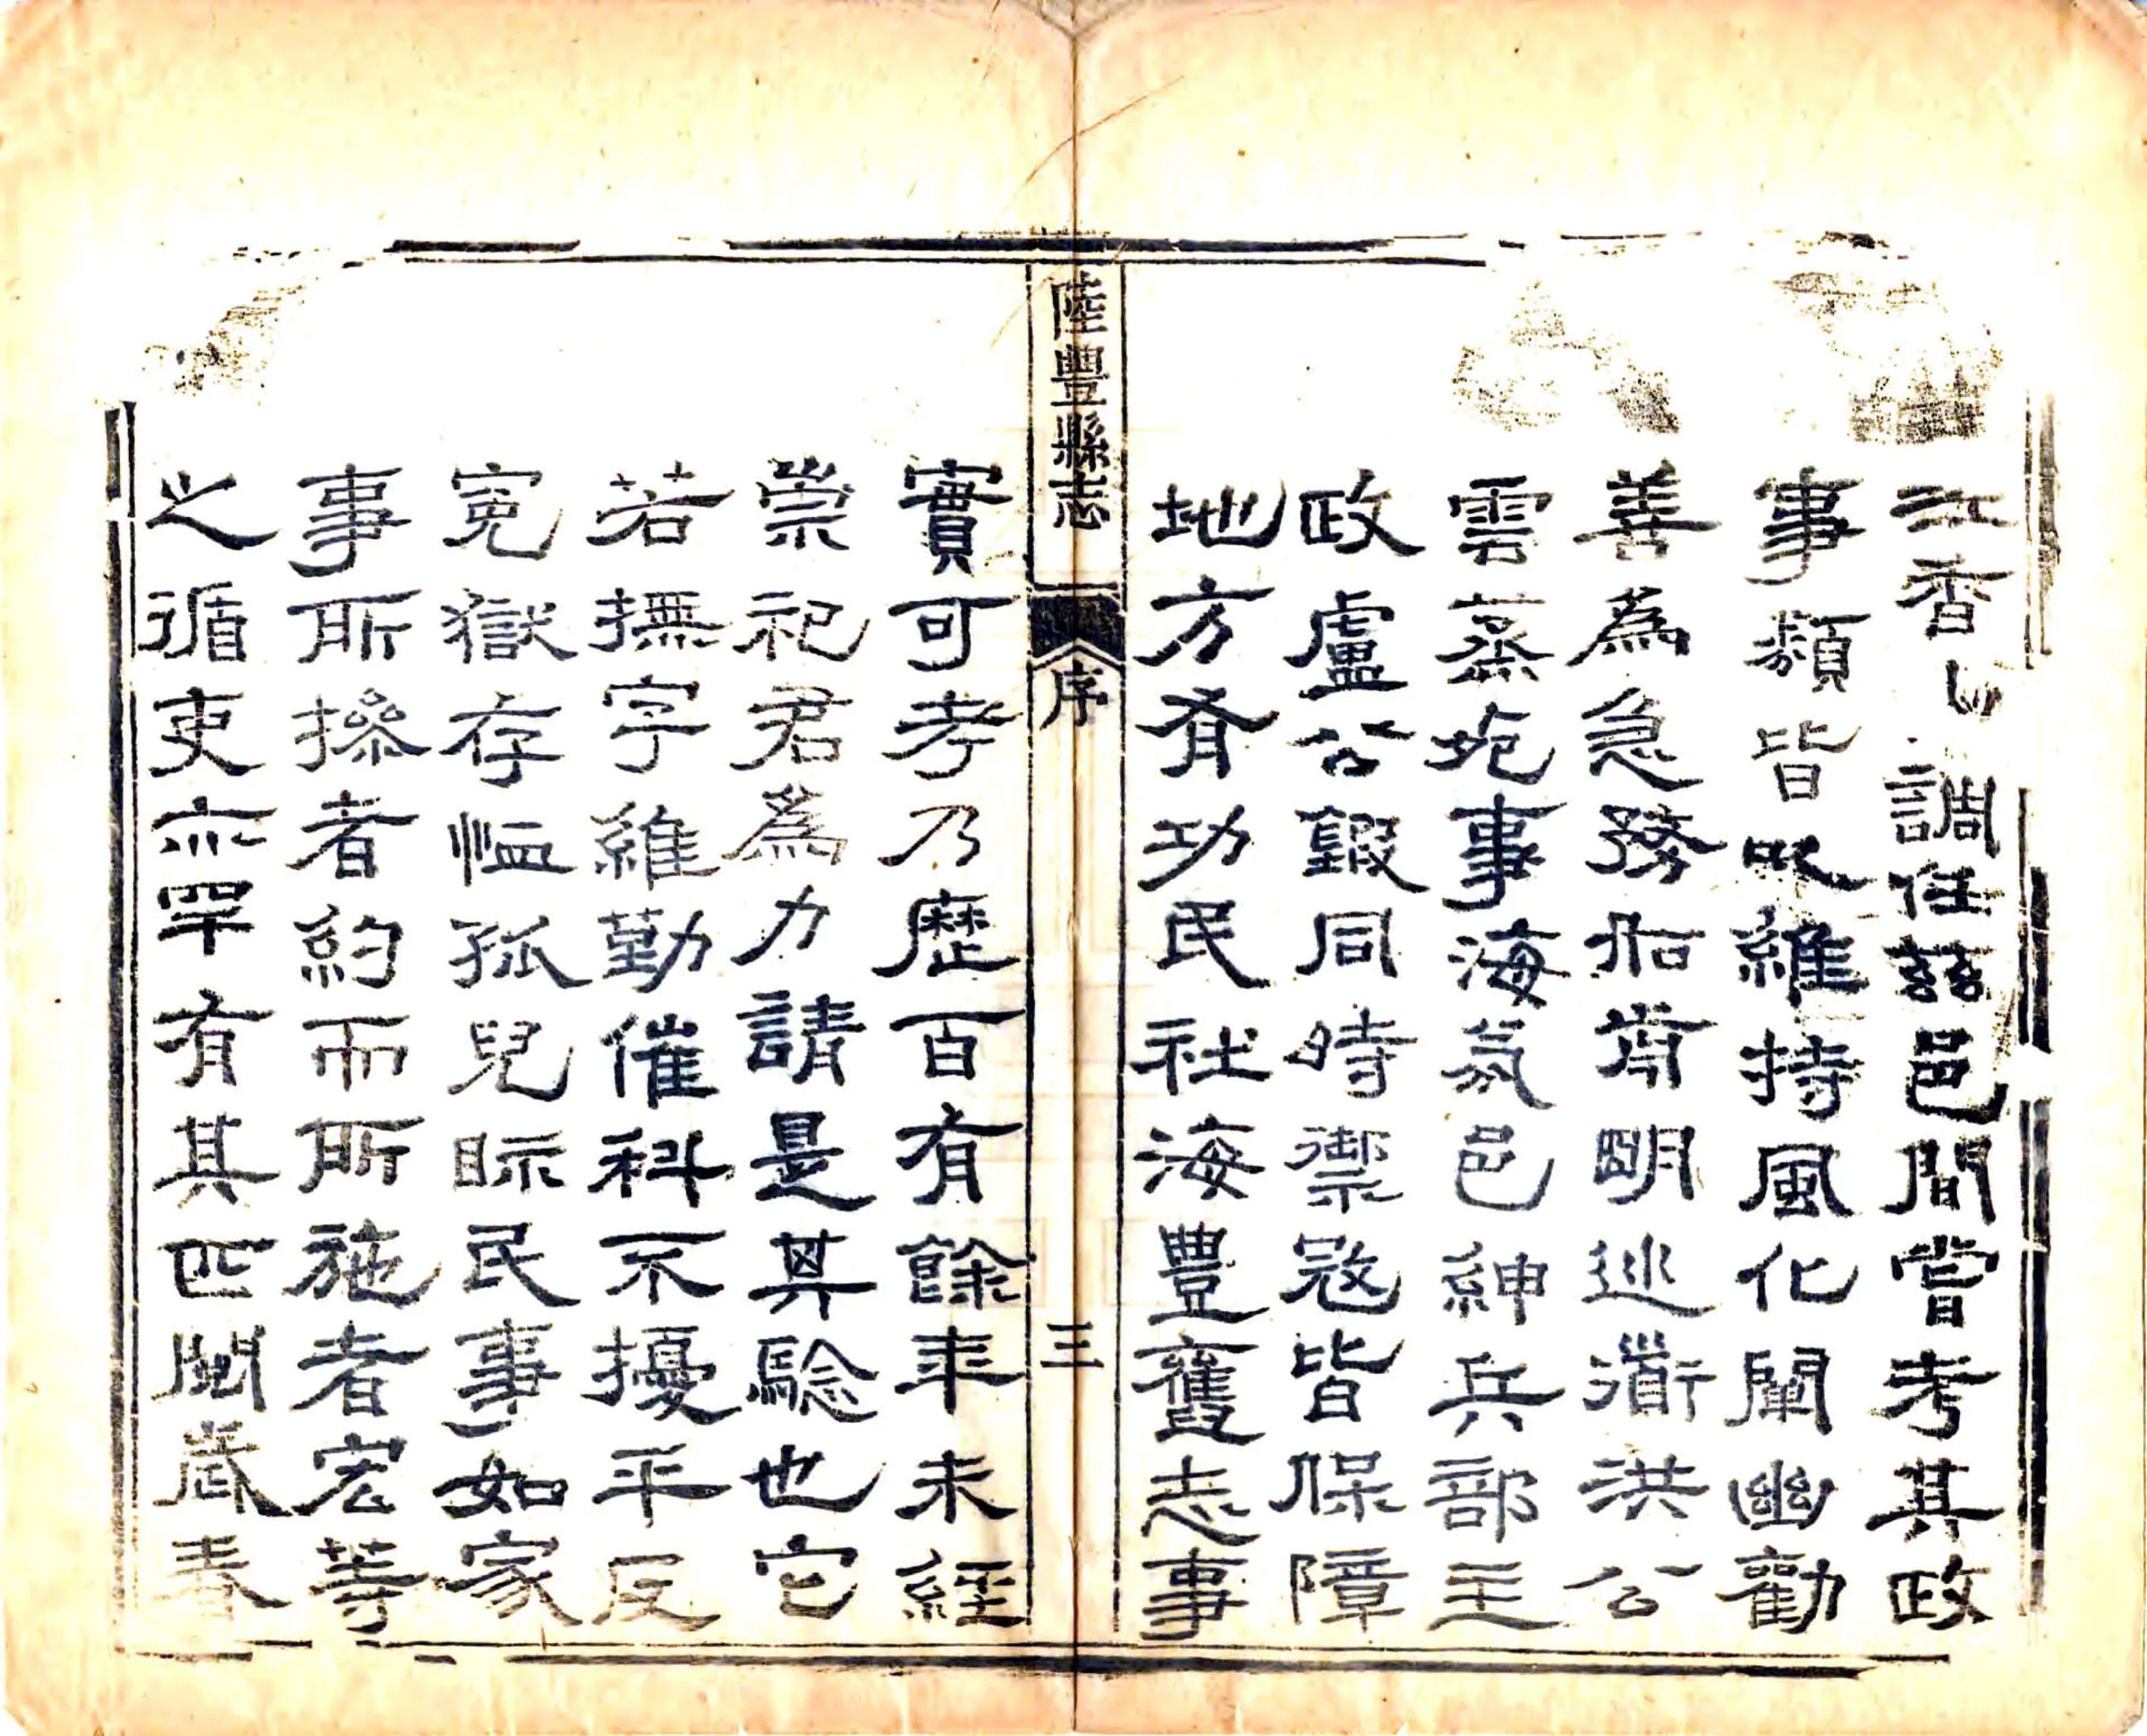 江香山調任茲邑間嘗考其政
事類皆以維持風化闡幽勸
善為急務前明巡衜洪公
雲蒸死事海氛邑紳兵部主
政盧公同時禦寇皆保障
地方有功民社海豐舊志事
陸豐縣志 序 三
實可考乃歷百有餘年未經
崇祀君為力請是其驗也它
若撫字維勤催科不擾平反
冤獄存恤孤兒眎民事如家
事所操者約而所施者宏等
之循吏亦罕有其匹閱歲春